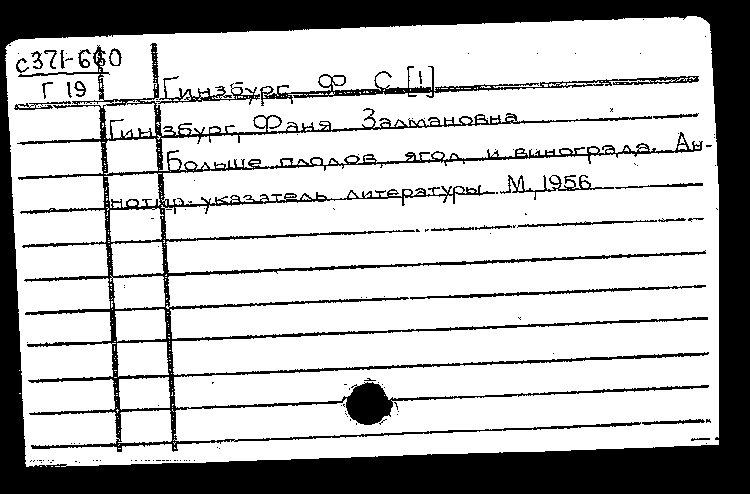 с371-660
Г 19
Гинзбург, Ф С [1]
Гинзбург, Фаня Залмановна
Больше плодов, ягод и винограда. Ан-
нотир. указатель литературы М., 1956